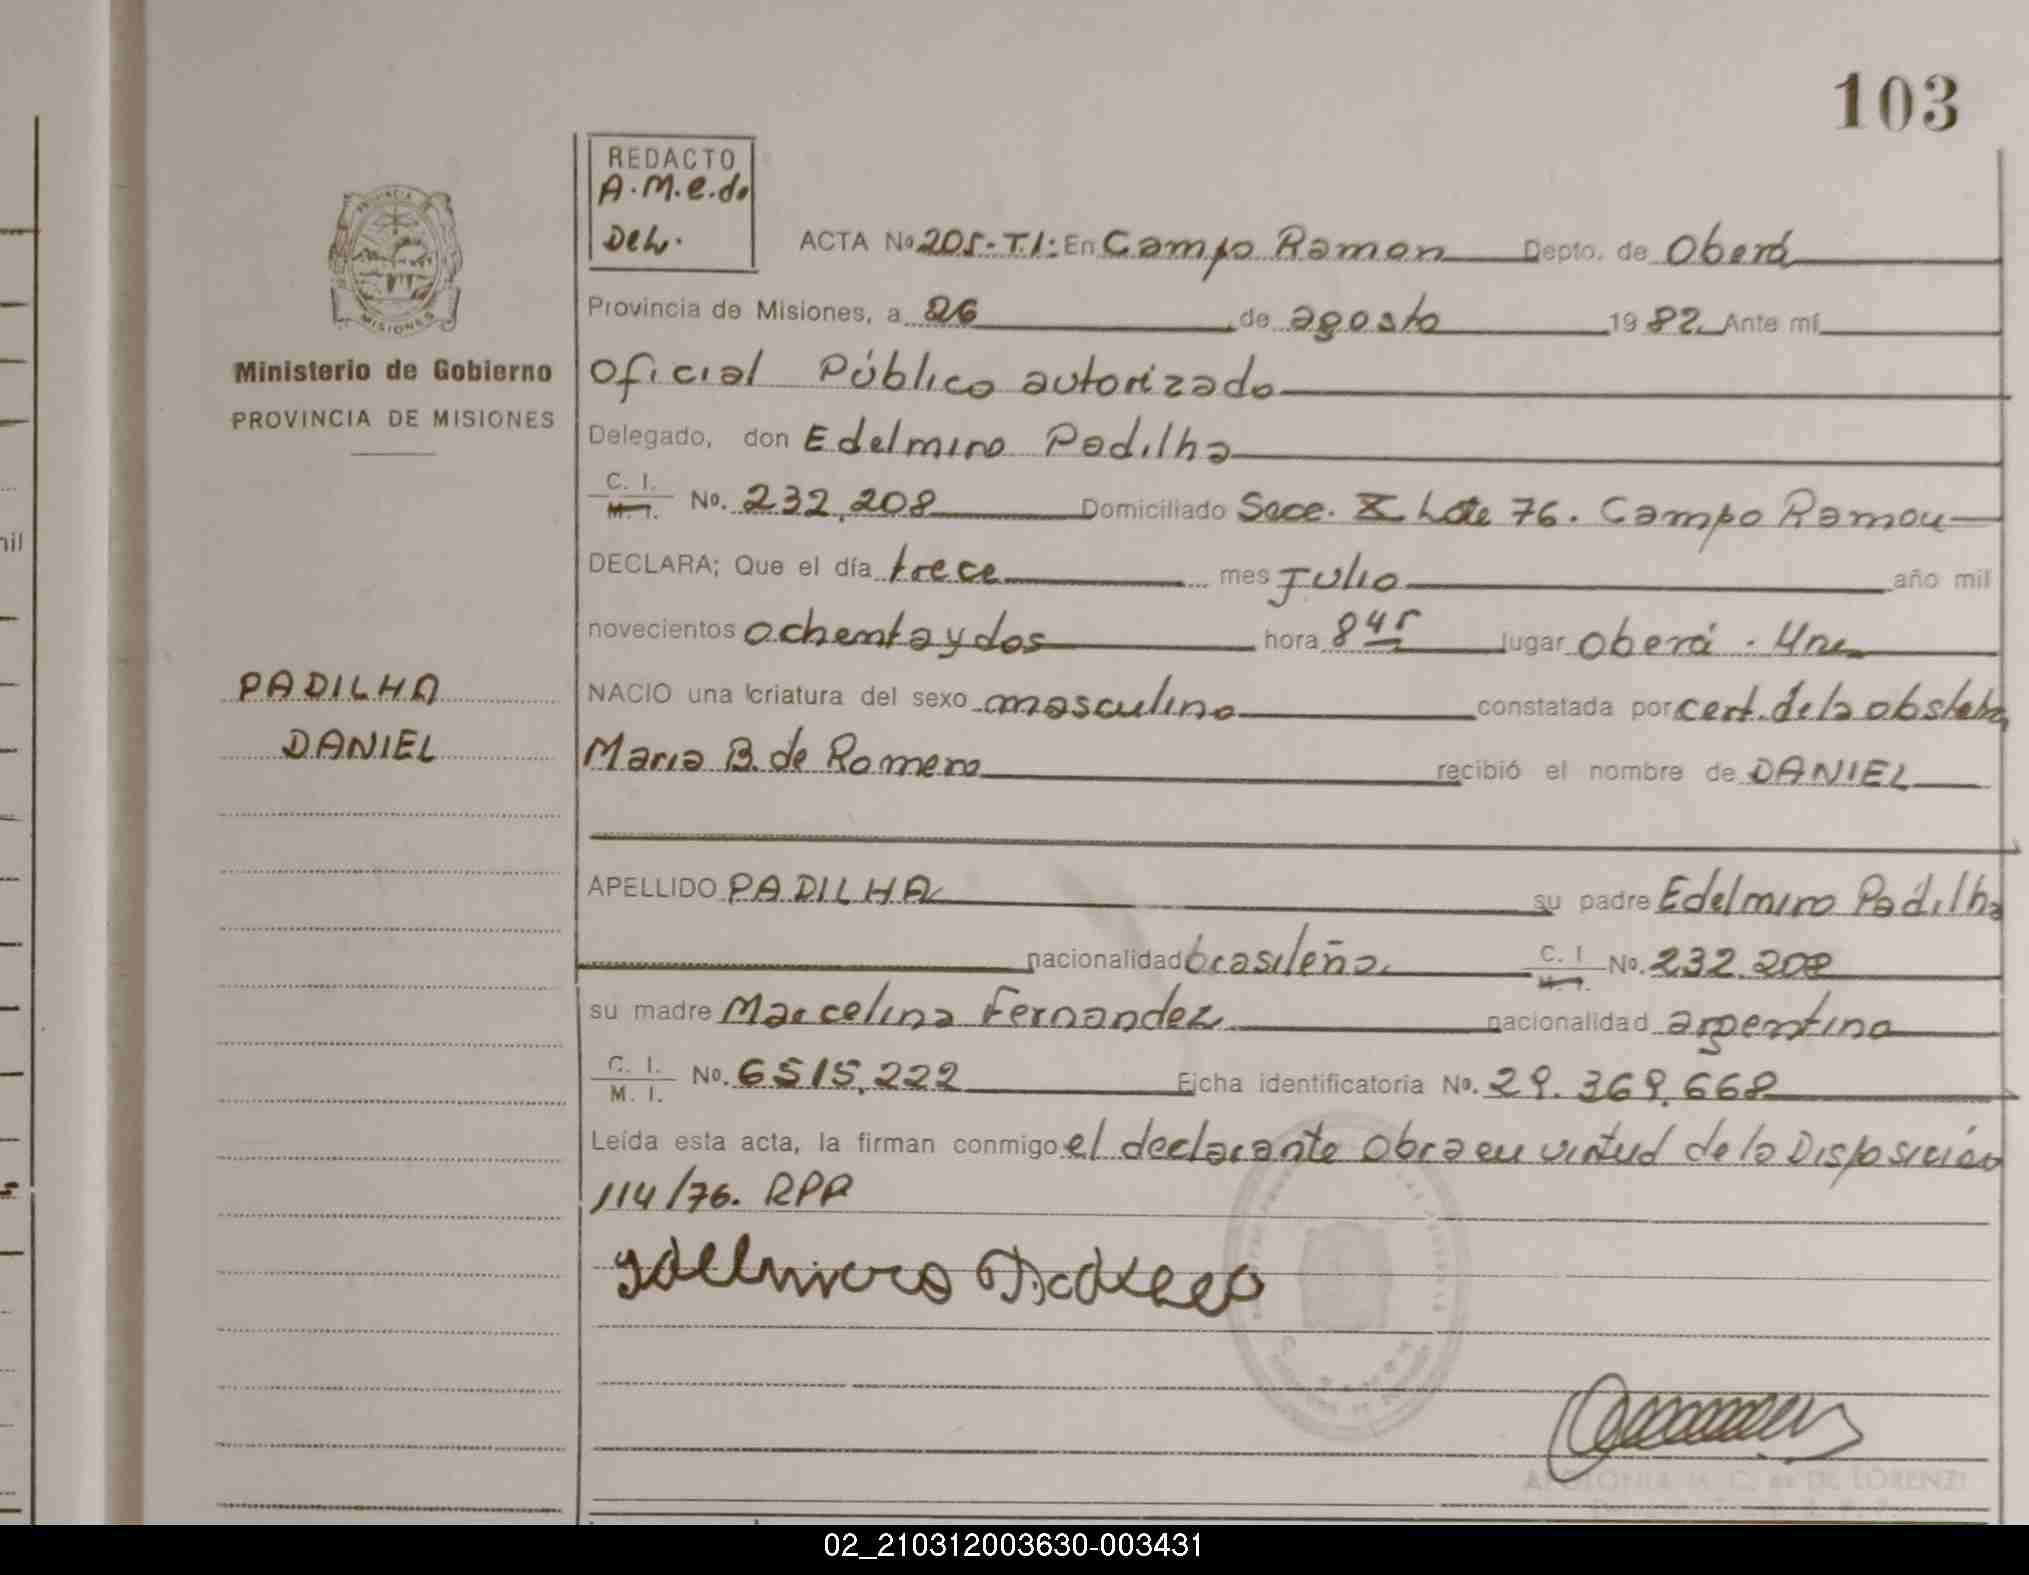 103
REDACTO
A.M.e.do
Del.
ACTA No 205-T.I: En Campo Ramon Depto. de Oberá
Provincia de Misiones, a 26 de agosto 1982 Ante mí
Ministerio de Gobierno
PROVINCIA DE MISIONES
Oficial Público autorizado
Delegado, don Edelmiro Padilha
C. I.
M. I. No. 232.208 Domiciliado Secc. X Lote 76. Campo Ramon
DECLARA; Que el día trece mes Julio año mil
novecientos ochenta y dos hora 845 lugar Oberá - Mnes
PADILHA
DANIEL
NACIO una criatura del sexo masculino constatada por cert. de la obstetra
Maria B. de Romero recibió el nombre de DANIEL
APELLIDO PADILHA su padre Edelmiro Padilha
nacionalidad brasileña C. I.
M. I. No. 232.208
su madre Marcelina Fernandez nacionalidad argentina
C. I.
M. I. No. 6515.222 Ficha identificatoria No. 29.369.668
Leída esta acta, la firman conmigo el declarante Obra en virtud de la Disposición
114/76. RPP
APOLONIA M. C. de DE LORENZI
MISIONES
02_210312003630-003431